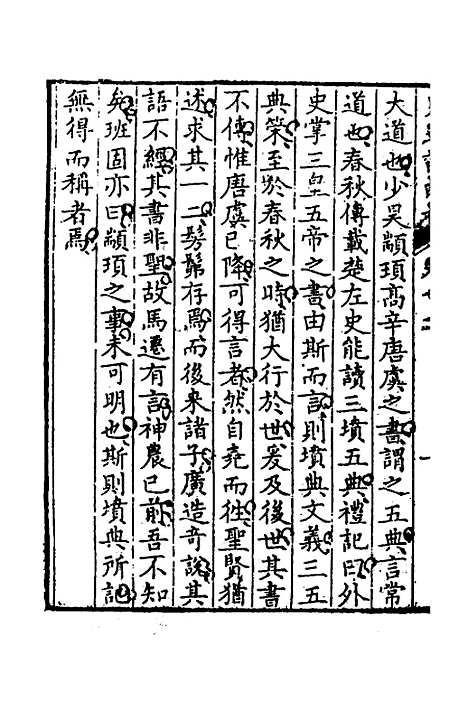 大道也少昊顓頊高辛唐虞之書謂之五典言常
道也春秋傳載楚左史能讀三墳五典禮記曰外
史掌三皇五帝之書由斯而言則墳典文義三五
典策至於春秋之時猶大行於世爰及後世其書
不傳惟唐虞已降可得言者然自堯而徃聖賢猶
述求其一二髣髴存焉而後來諸子廣造奇說其
語不經其書非聖故馬遷有言神農已前吾不知
矣班固亦曰顓頊之事未可明也斯則墳典所記
無得而稱者焉